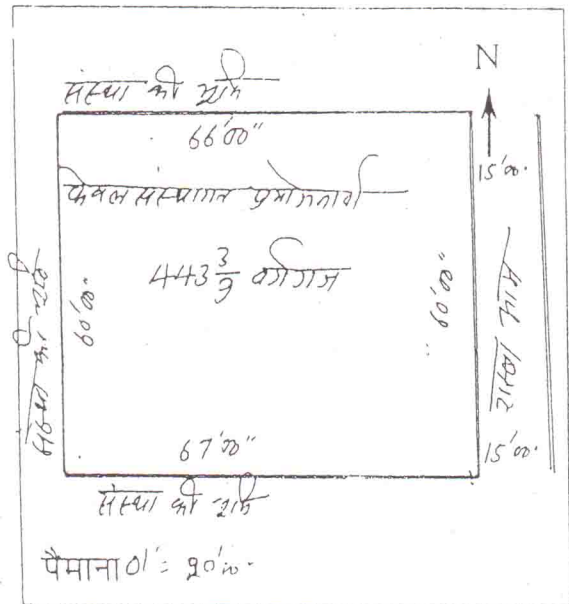 संस्था की भूमि
N
66'00"
15'00"
केवल संस्थागत प्रयोजनार्थ
443 3/9 वर्गगज
60'00"
60'00"
संस्था की भूमि
67'00"
15'00"
संस्था की भूमि
पैमाना 01" = 20'00"